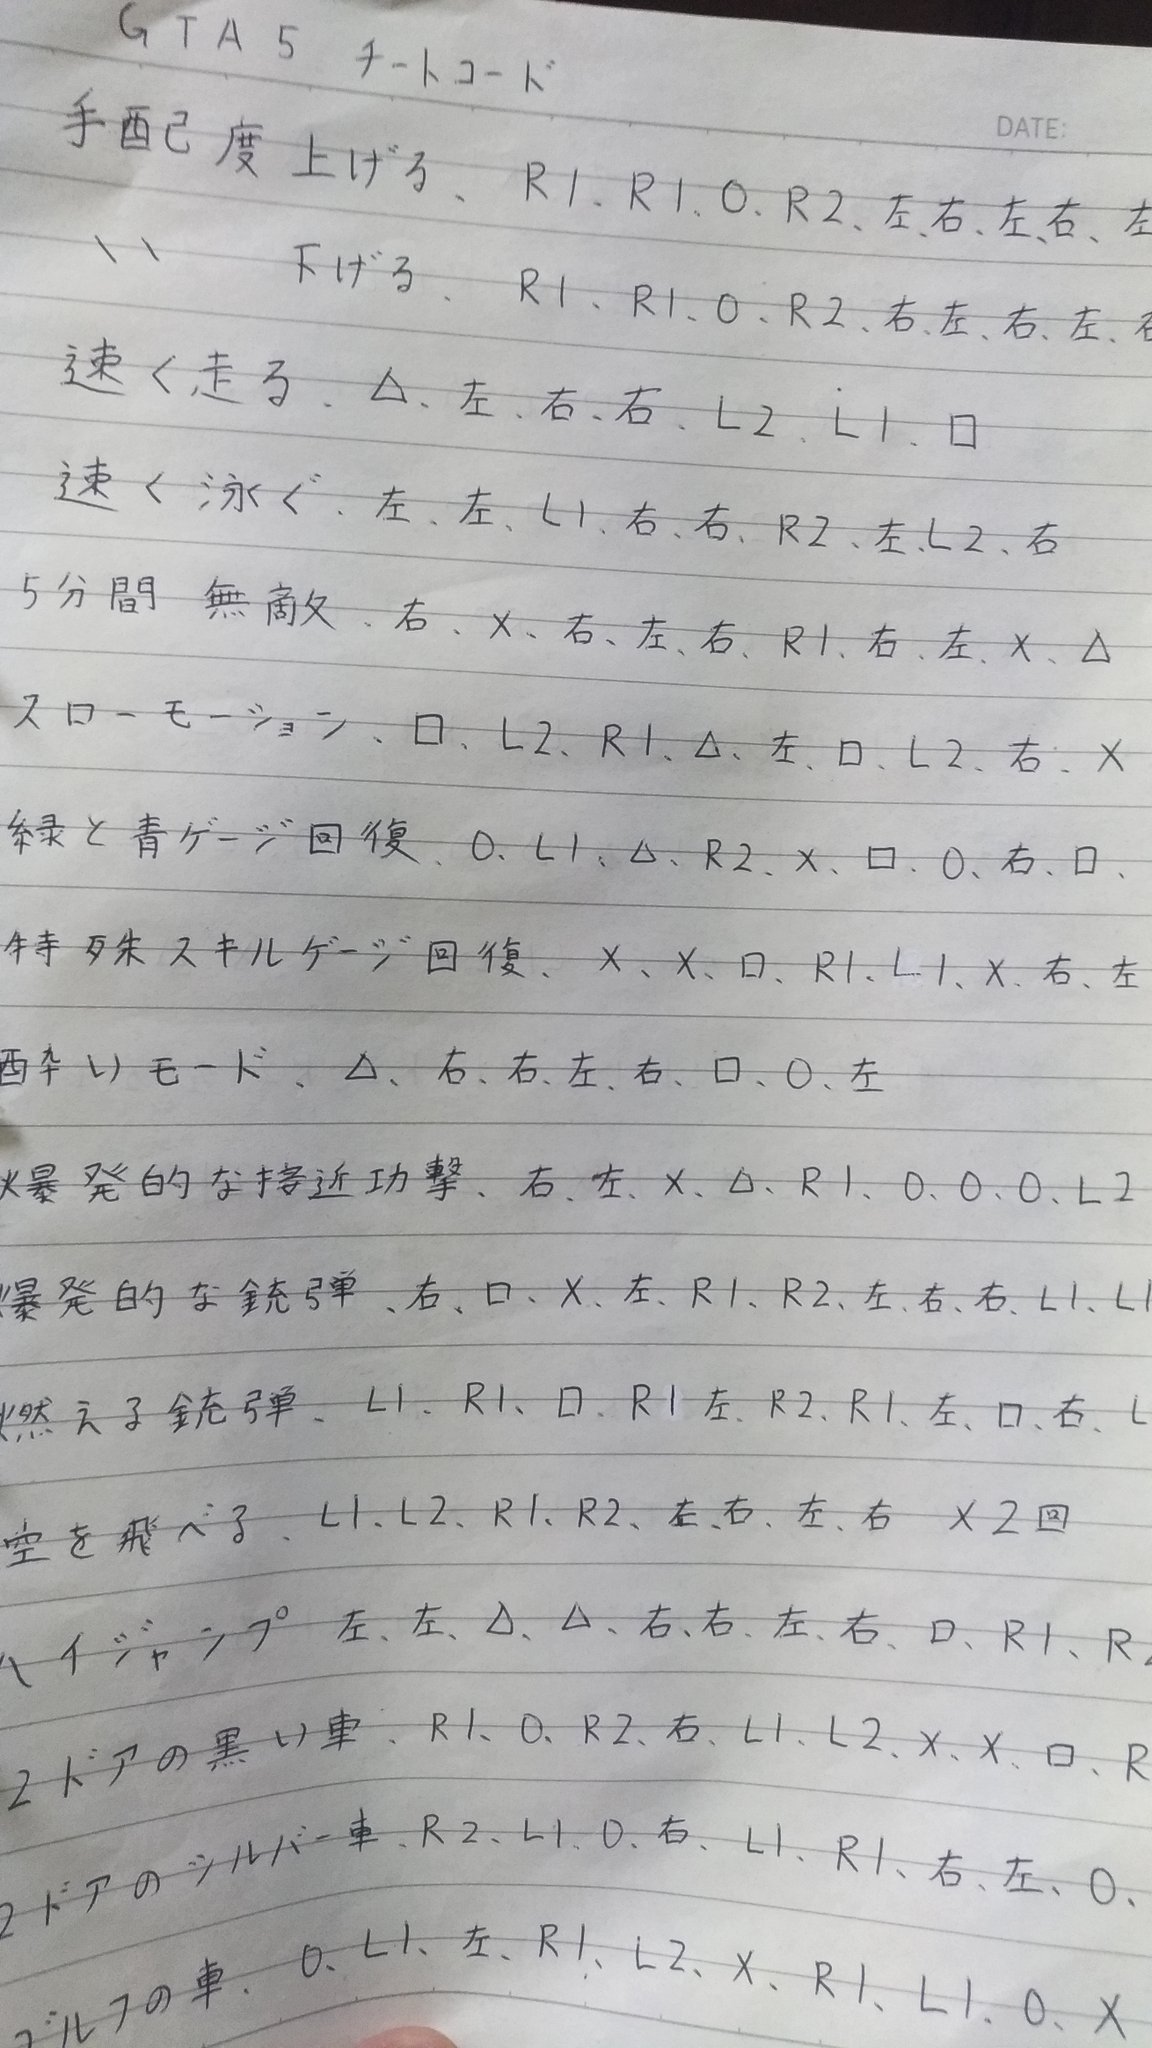 GTA5 チートコード
DATE:
手配己度 上げる、R1、R1、O、R2、左、右、左、右、左
〃 下げる、R1、R1、O、R2、右、左、右、左、右
速く走る、△、左、右、右、L2、L1、□
速く泳ぐ、左、左、L1、右、右、R2、左、L2、右
5分間 無敵、右、X、右、左、右、R1、右、左、X、△
スローモーション、□、L2、R1、△、左、□、L2、右、X
緑と青ゲージ回復、O、L1、△、R2、X、□、O、右、□、
特殊スキルゲージ回復、X、X、□、R1、L1、X、右、左
酔いモード、△、右、右、左、右、□、O、左
爆発的な接近功撃、右、左、X、△、R1、O、O、O、L2
爆発的な銃弾、右、□、X、左、R1、R2、左、右、右、L1、L1
燃える銃弾、L1、R1、□、R1 左、R2、R1、左、□、右、L
空を飛べる、L1、L2、R1、R2、左、右、左、右 X2回
ハイジャンプ 左、左、△、△、右、右、左、右、□、R1、R2
2ドアの黒い車、R1、O、R2、右、L1、L2、X、X、□、R
2ドアのシルバー車、R2、L1、O、右、L1、R1、右、左、O、
ゴルフの車、O、L1、左、R1、L2、X、R1、L1、O、X